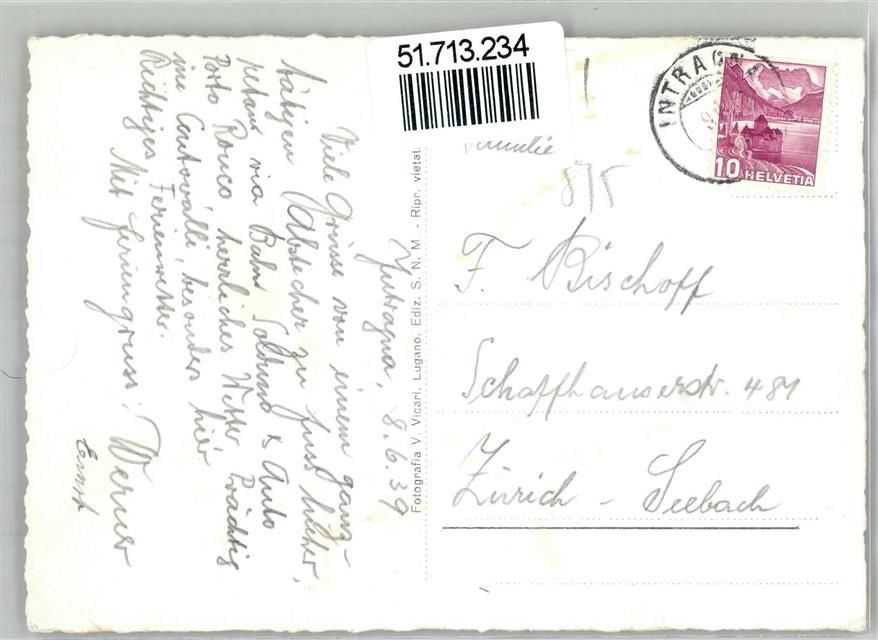 51.713.234
INTRAGNA
10 HELVETIA
Familie
875
F. Bischoff
Schaffhauserstr. 481
Zürich - Seebach
Fotografia V. Vicari, Lugano, Ediz. S. N. M. - Ripr. vietat.
Intragna, 8.6.39
Viele Grüsse von einem ganz-
tätigen Abstecher zu fuss hieher,
retour via Bahn Solduno & Auto
Porto Ronco, herrliches Wetter. Prächtig
im Centovalli, besonders hier.
Richtiges Ferienwetter.
Mit feriengruss! Werner
Ernst